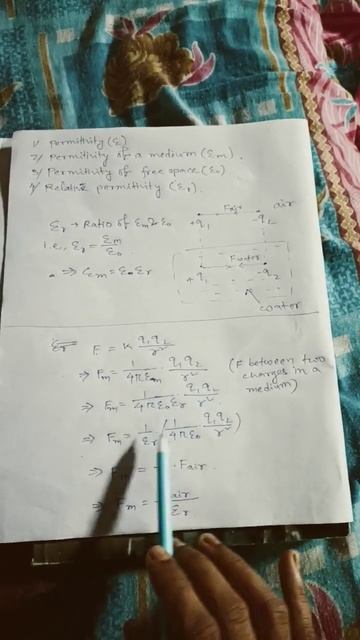 1) permitivity (ε)
2) Permitivity of a medium (εm).
3) Permitivity of free space (ε₀)
4) Relative permitivity (εr).
εr → Ratio of εm & ε₀
i.e., εr = εm/ε₀
⇒ εm = ε₀ εr
Fair air
+q₁ -q₂
Fwater
+q₁ -q₂
water
εr F = K q₁q₂/r²
⇒ Fm = 1/4πεm · q₁q₂/r² (F between two charges in a medium)
⇒ Fm = 1/4πε₀εr · q₁q₂/r²
⇒ Fm = 1/εr (1/4πε₀ · q₁q₂/r²)
⇒ · Fair
⇒ Fm = air/εr